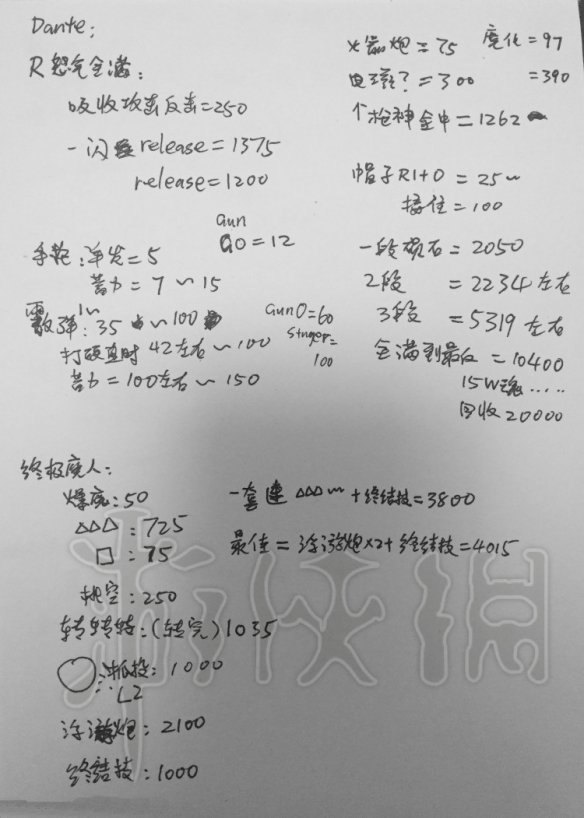 Dante:
R 怒气全满:
吸收攻击反击=250
一闪 release=1375
release=1200
手枪:单发=5
Gun
GO=12
蓄力=7~15
散弹:35~100
GunO=60
打硬直时42左右~100
100
蓄力=100左右~150
火箭炮=75 魔化=97
电磁?=300 =390
个枪神全中=1262
帽子R1+O=25~
接住=100
一段陨石=2050
2段=2234左右
3段=5319左右
全满到最后=10400
15W魂.....
回收20000
终极魔人:
爆魔:50
△△△:725
□:75
挑空:250
转转转:(转完)1035
○:抓投:1000
L2
浮游炮:2100
终结技:1000
一套连△△△~+终结技=3800
最佳=浮游炮x2+终结技=4015
游侠网